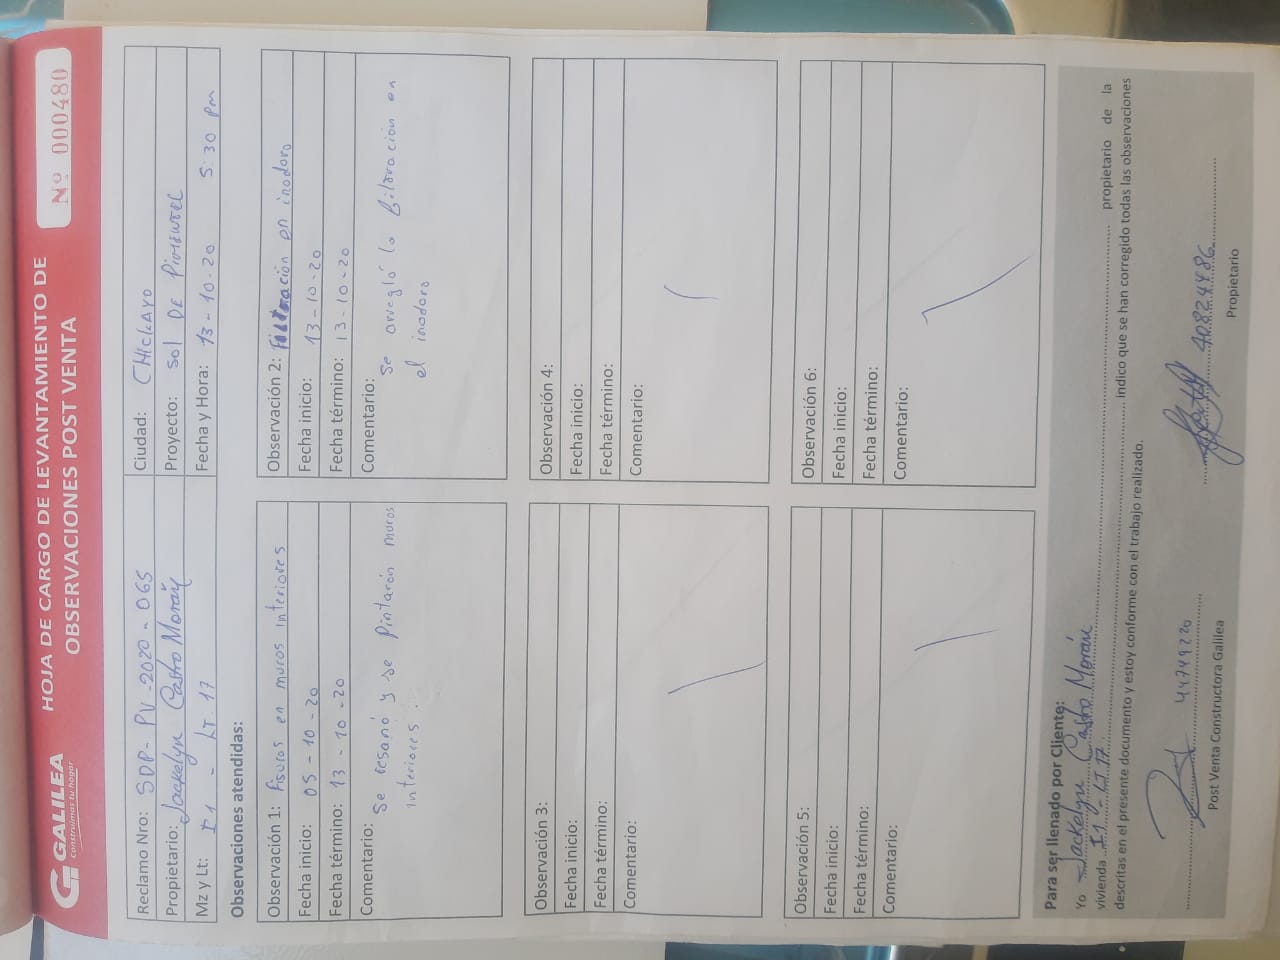 GALILEA
construimos tu hogar
HOJA DE CARGO DE LEVANTAMIENTO DE
OBSERVACIONES POST VENTA
Nº 000480
Reclamo Nro: SDP- PV -2020 - 065
Ciudad: CHICLAYO
Propietario: Jackelyn Castro Morán
Proyecto: Sol DE PIMENTEL
Mz y Lt: I1 - LT 17
Fecha y Hora: 13 - 10 - 20 5:30 pm
Observaciones atendidas:
Observación 1: Fisuras en muros interiores
Fecha inicio: 05 - 10 - 20
Fecha término: 13 - 10 - 20
Comentario:
Se resanó y se pintarón muros
interiores.
Observación 2: Filtración en inodoro
Fecha inicio: 13 - 10 - 20
Fecha término: 13 - 10 - 20
Comentario:
Se arregló la filtración en
el inodoro
Observación 3:
Fecha inicio:
Fecha término:
Comentario:
Observación 4:
Fecha inicio:
Fecha término:
Comentario:
Observación 5:
Fecha inicio:
Fecha término:
Comentario:
Observación 6:
Fecha inicio:
Fecha término:
Comentario:
Para ser llenado por Cliente:
Yo Jackelyn Castro Morán propietario de la
vivienda I1 - LT 17 indico que se han corregido todas las observaciones
descritas en el presente documento y estoy conforme con el trabajo realizado.
44749220
40824486
Post Venta Constructora Galilea
Propietario